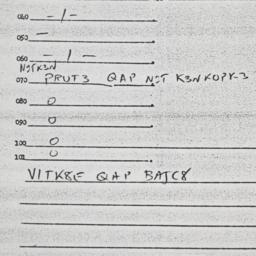 040 – / –
050 –
060 – / –
NOTK3N
070 PRUT3 QAP NOT K3NKOPK3
080 0
090 0
100 0
101 0
VITK8E QAP BAJC8